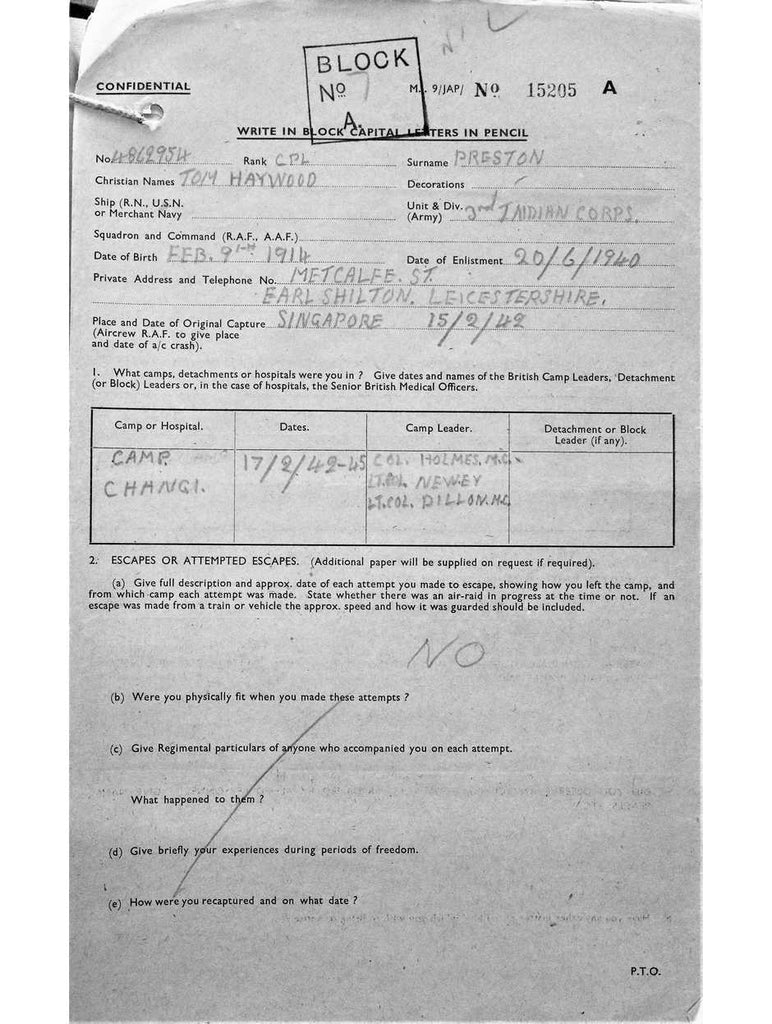 NIL
CONFIDENTIAL
BLOCK
No 7
A.
M. 9/JAP/ No 15205 A
WRITE IN BLOCK CAPITAL LETTERS IN PENCIL
No. 4862954 Rank CPL Surname PRESTON
Christian Names TOM HAYWOOD Decorations
Ship (R.N., U.S.N.
or Merchant Navy
Unit & Div.
(Army) 3rd INDIAN CORPS.
Squadron and Command (R.A.F., A.A.F.)
Date of Birth FEB. 9TH 1914 Date of Enlistment 20/6/1940
Private Address and Telephone No. METCALFE. ST.
EARL SHILTON. LEICESTERSHIRE.
Place and Date of Original Capture SINGAPORE 15/2/42
(Aircrew R.A.F. to give place
and date of a/c crash).
1. What camps, detachments or hospitals were you in ? Give dates and names of the British Camp Leaders, Detachment
(or Block) Leaders or, in the case of hospitals, the Senior British Medical Officers.
Camp or Hospital. Dates. Camp Leader. Detachment or Block
Leader (if any).
CAMP 17/2/42-45 COL. HOLMES. M.C.
CHANGI. LT.COL. NEWEY
LT.COL. DILLON. M.C.
2. ESCAPES OR ATTEMPTED ESCAPES. (Additional paper will be supplied on request if required).
(a) Give full description and approx. date of each attempt you made to escape, showing how you left the camp, and
from which camp each attempt was made. State whether there was an air-raid in progress at the time or not. If an
escape was made from a train or vehicle the approx. speed and how it was guarded should be included.
NO
(b) Were you physically fit when you made these attempts ?
(c) Give Regimental particulars of anyone who accompanied you on each attempt.
What happened to them ?
(d) Give briefly your experiences during periods of freedom.
(e) How were you recaptured and on what date ?
P.T.O.